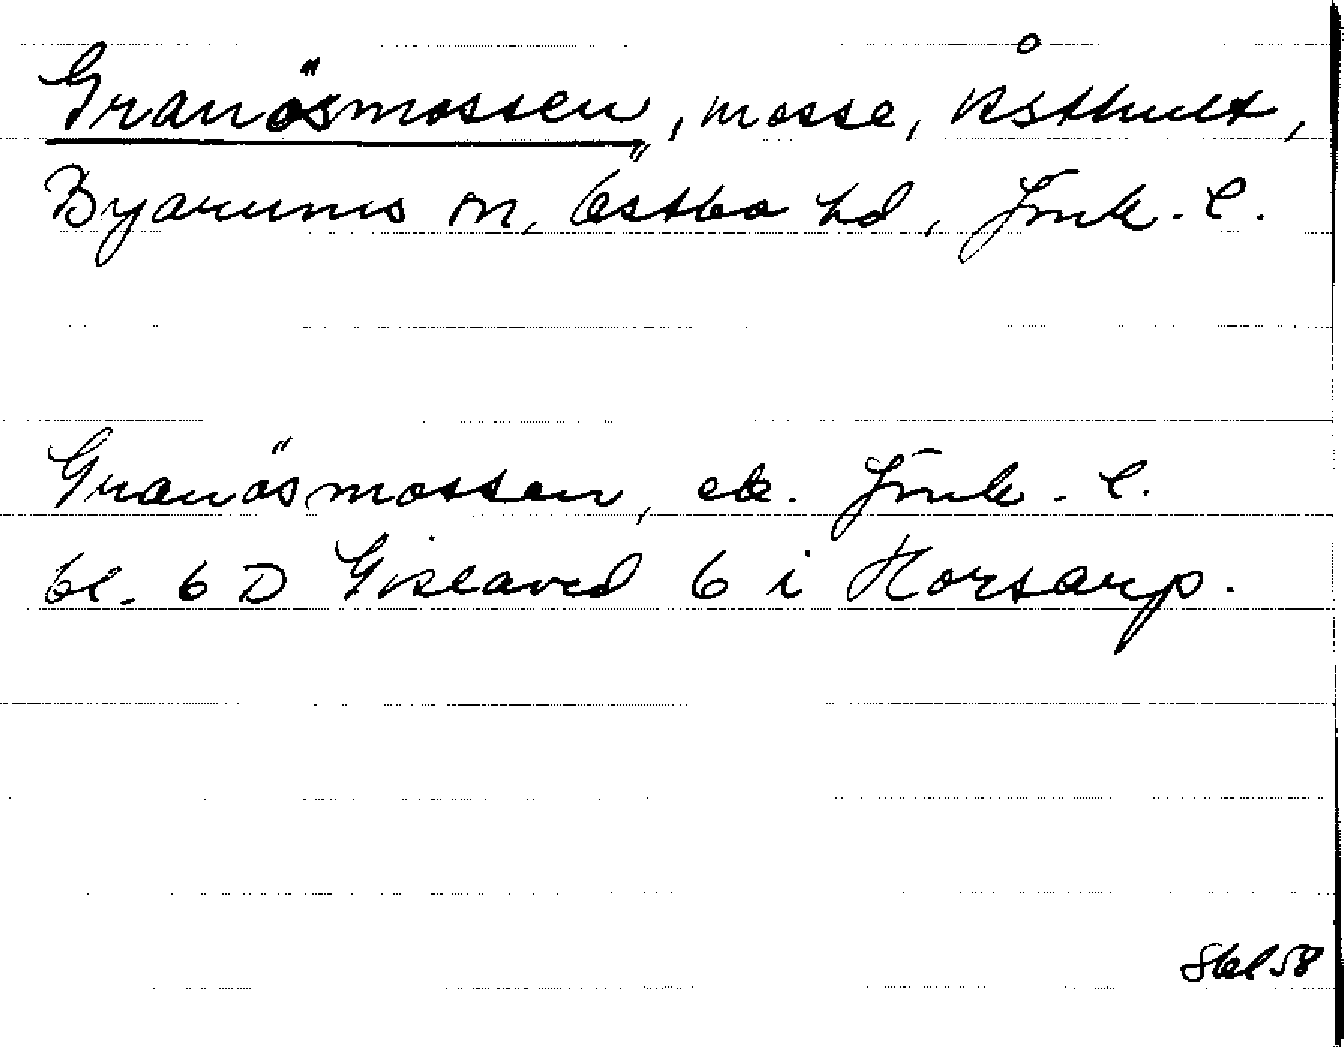 Granösmossen, mosse, Åsthult,
Byarums sn, Östbo hd, Jönk. l.
Granösmossen, ek. Jönk. l.
bl. 6 D Gislaved 6 i Horsarp.